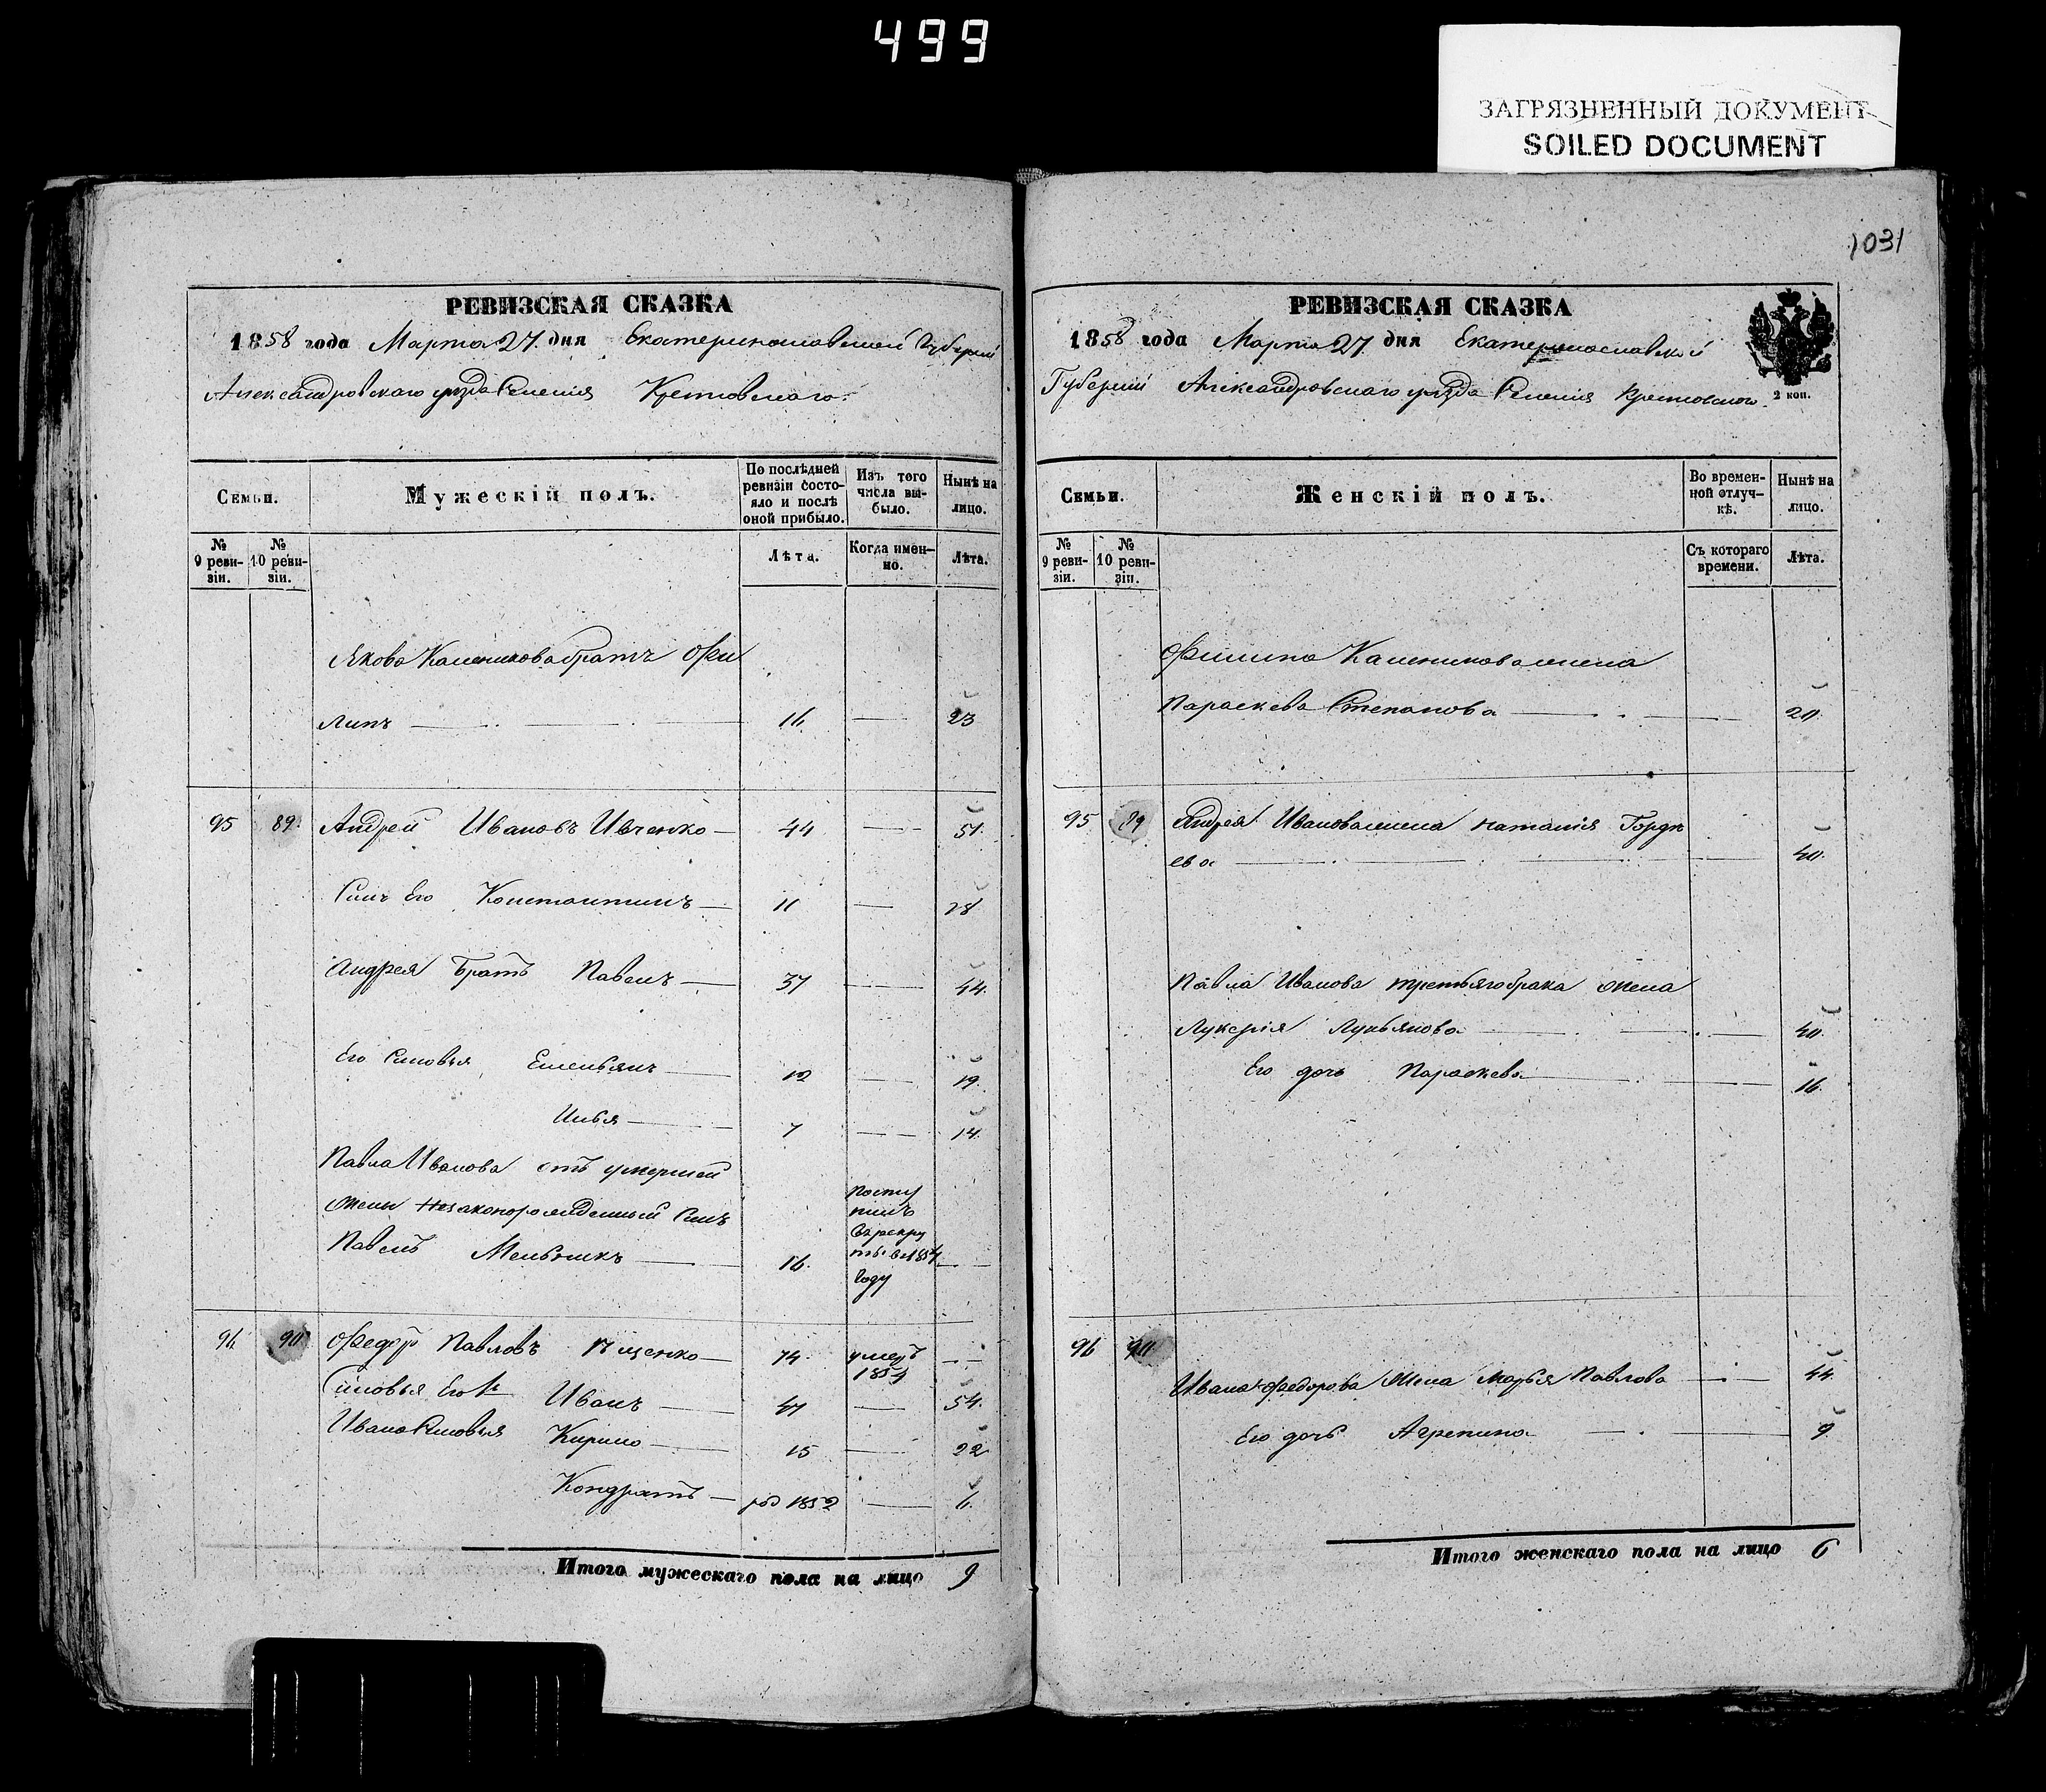 499
ЗАГРЯЗНЕННЫЙ ДОКУМЕНТ
SOILED DOCUMENT
РЕВИЗСКАЯ СКАЗКА
1858 года Марта 27 дня Екатеринославской Губернии
Александровскаго уезда Селения
Семьи.
Мужескій полъ.
По послѣдней ревизіи состо-
яло и послѣ
оной прибыло.
Изъ того
числа вы-
было.
Нынѣ на
лицо.
№
9 реви-
зіи.
№
10 реви-
зіи.
Лѣта.
Когда имен-
но.
Лѣта.
Якова Каленикова братъ Фи
липъ 16 23
95 89 Андрей Ивановъ Ивченко 44 51
Сынъ Его Константинъ 11 28
Андрея Братъ Павелъ 37 44
Его Сыновья Емельянъ 12 19
Илья 7 14
Павла Иванова отъ умершей
жены Незаконорожденный Сынъ
Павелъ 16
посту
пилъ
въ рекру
ты въ 1854
году
96 90 Федор Павловъ 74 умеръ 1854
Сыновья Его 1й Иванъ 47 54
Ивана Сыновья Кирило 15 22
Кондратъ род 1852 6
Итого мужескаго пола на лицо 9
1031
РЕВИЗСКАЯ СКАЗКА
1858 года Марта 27 дня Екатеринославской
Губернии Александровскаго уезда Селения
2 коп.
Семьи.
Женскій полъ.
Во времен-
ной отлуч-
кѣ.
Нынѣ на
лицо.
№
9 реви-
зіи.
№
10 реви-
зіи.
Съ котораго
времени.
Лѣта.
Филипа Каленикова жена
Параскева Степанова 20
95 89 Андрея Иванова жена Наталія Горде
ева 40
Павла Иванова третьяго брака жена
Лукерія Лукьянова 40
Его дочь Параскева 16
96 90
Ивана Федорова жена Марья Павлова 44
Его дочь Агрепина 9
Итого женскаго пола на лицо 6